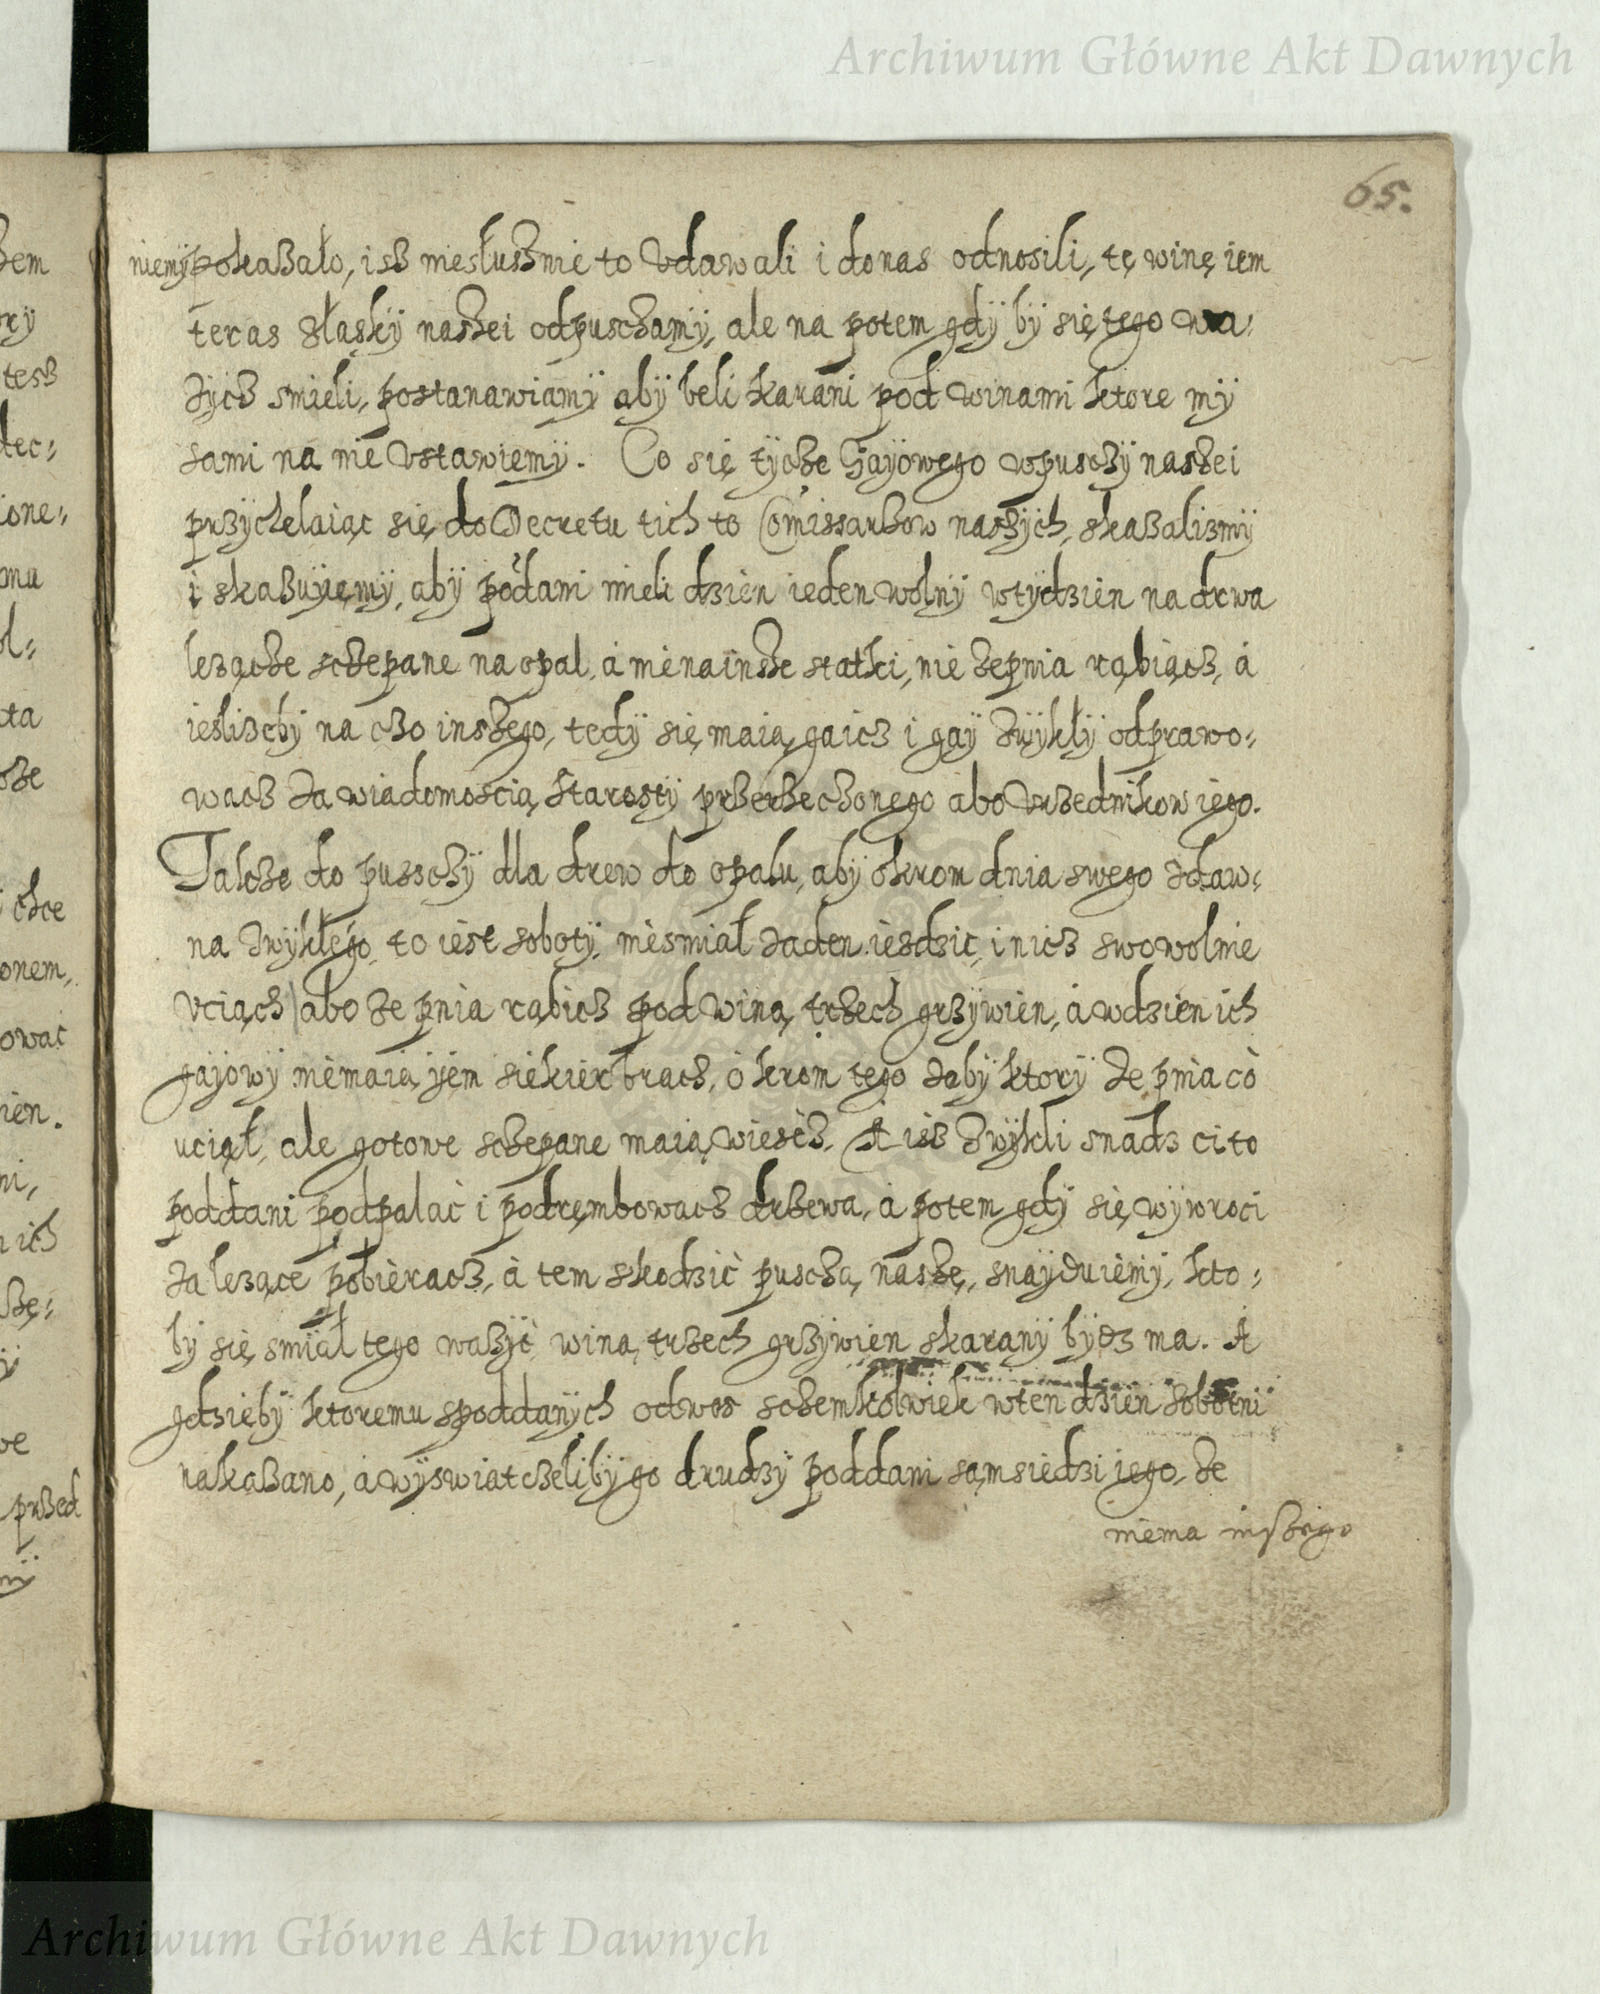 Archiwum Główne Akt Dawnych
65.
niemÿ pokaßało, isß niesłusznie to Vdawali i do nas odnosili, tę winę iem
teras złaskÿ naszei odpusczamÿ, ale na potem gdÿ bÿ się tego wa⸗
zÿcz smieli, postanawiamÿ abÿ beli karani pod winami ktore mÿ
sami na nie Vstawiemÿ. Co się tÿcze Gaÿowego wpusczÿ naszei
przÿchelaiąc się do Decretu tich to Comissarzow naszÿch, skaßalismÿ
i skaßuÿiemÿ, abÿ podani mieli dzien ieden wolnÿ wtÿdzien na drwa
lezącze sczepane na opal, á niè na insze statki, nie zepnia rąbiącz, á
iesliżebÿ na czo inszego, tedÿ się maią gaicz i gaÿ zwÿkłÿ odprawo⸗
wacz za wiadomoscią Starostÿ przerzeczonego abo Vrzednikow iego.
Takze do pusczÿ dla drew do opalu, abÿ okrom dnia swego zdaw⸗
na zwÿkłego, to iest sobotÿ, niesmiał zaden iezdzic, i nicz swowolnie
Vciącz abo ze pnia rąbicz pod winą trzech grzÿwien, á wdzien ich
gajowÿ niemaią jem siekier bracz, okrom tego zabÿ ktorÿ ze pnia co
uciął, ale gotowe sczepane maią wiescz. A isz zwÿkli snadz ci to
poddani podpalać i podrembowacz drzewa, á potem gdÿ się wÿwroci
za lezące pobieracz, á tem skodzić puscza nasze, snaÿduiemÿ, kto⸗
bÿ się smiał tego waßÿć winą trzech grzÿwien skaranÿ bÿdz ma. A
gdziebÿ ktoremu spoddanÿch odwos sczemkolwiek wten dzien sobotni
nakaßano, á wÿswiatczelibÿ go drudzÿ poddani samsiedzi iego, ze
niema inszego
Archiwum Główne Akt Dawnych